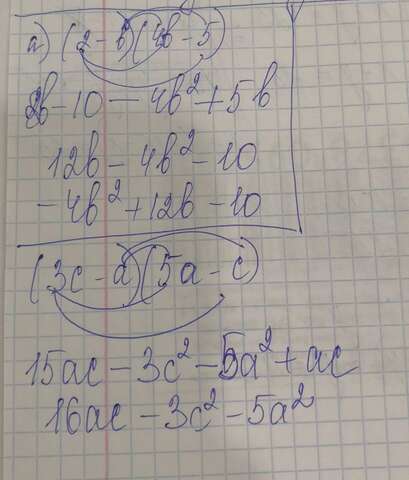 а) (2 - b)(4b - 5)
8b - 10 - 4b² + 5b
12b - 4b² - 10
-4b² + 12b - 10
(3c - a)(5a - c)
15ac - 3c² - 5a² + ac
16ac - 3c² - 5a²